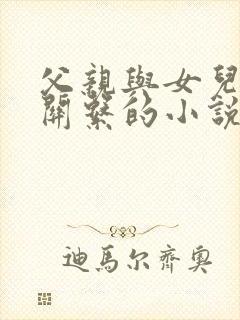 父親與女兒
關系的小說
迪馬尔齊奥